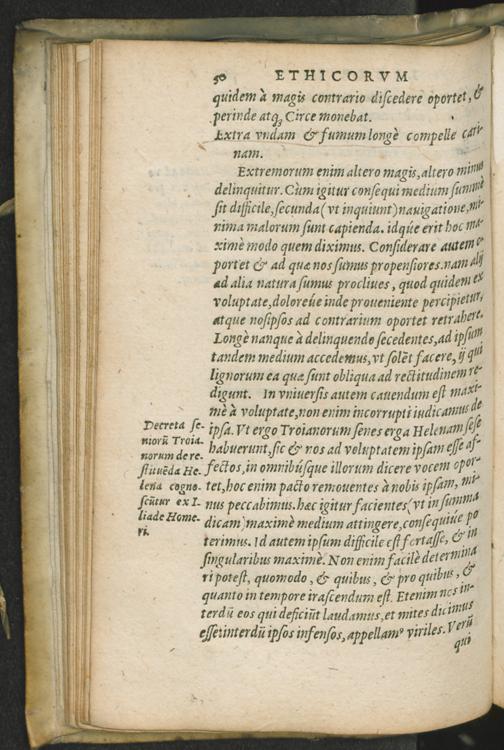 50 ETHICORVM
quidem à magis contrario discedere oportet, &
perinde atq; Circe monebat.
Extra vndam & fumum longè compelle cari-
nam.
Extremorum enim altero magis, altero minus
delinquitur. Cùm igitur consequi medium summè
sit difficile, secunda (vt inquiunt) nauigatione, mi-
nima malorum sunt capienda. idqúe erit hoc ma-
ximè modo quem diximus. Considerare autem o-
portet & ad quæ nos sumus propensiores. nam alij
ad alia natura sumus procliues, quod quidem ex
voluptate, doloreúe inde proueniente percipietur,
atque nosipsos ad contrarium oportet retrahere.
Longè nanque à delinquendo secedentes, ad ipsum
tandem medium accedemus, vt solēt facere, ij qui
lignorum ea quæ sunt obliqua ad rectitudinem re-
digunt. In vniuersis autem cauendum est maxi-
mè à voluptate, non enim incorrupti iudicamus de
ipsa. Vt ergo Troianorum senes erga Helenam sese
habuerunt, sic & nos ad voluptatem ipsam esse af-
fectos, in omnibúsque illorum dicere vocem opor-
tet, hoc enim pacto remouentes à nobis ipsam, mi-
nus peccabimus. hæc igitur facientes (vt in summa
dicam) maximè medium attingere, consequiúe po
terimus. Id autem ipsum difficile est fortasse, & in
singularibus maximè. Non enim facilè determina
ri potest, quomodo, & quibus, & pro quibus, &
quanto in tempore irascendum est. Etenim nos in-
terdū eos qui deficiūt laudamus, et mites dicimus
esse: interdū ipsos infensos, appellamꝰ viriles. Verū
qui
Decreta se-
niorū Troia-
norum de re-
stituēda He-
lena cogno-
scūtur ex I-
liade Home-
ri.